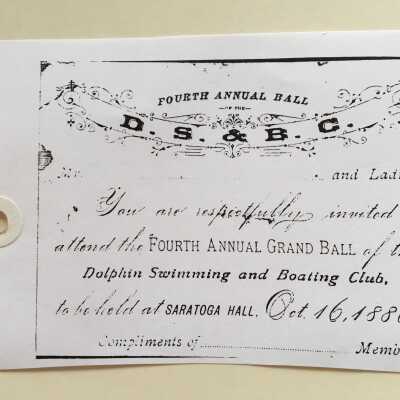 FOURTH ANNUAL BALL
OF THE
D. S. & B. C.
Mr. and Ladi
You are respectfully invited
attend the FOURTH ANNUAL GRAND BALL of th
Dolphin Swimming and Boating Club,
to be held at SARATOGA HALL, Oct. 16, 188
Compliments of Memb